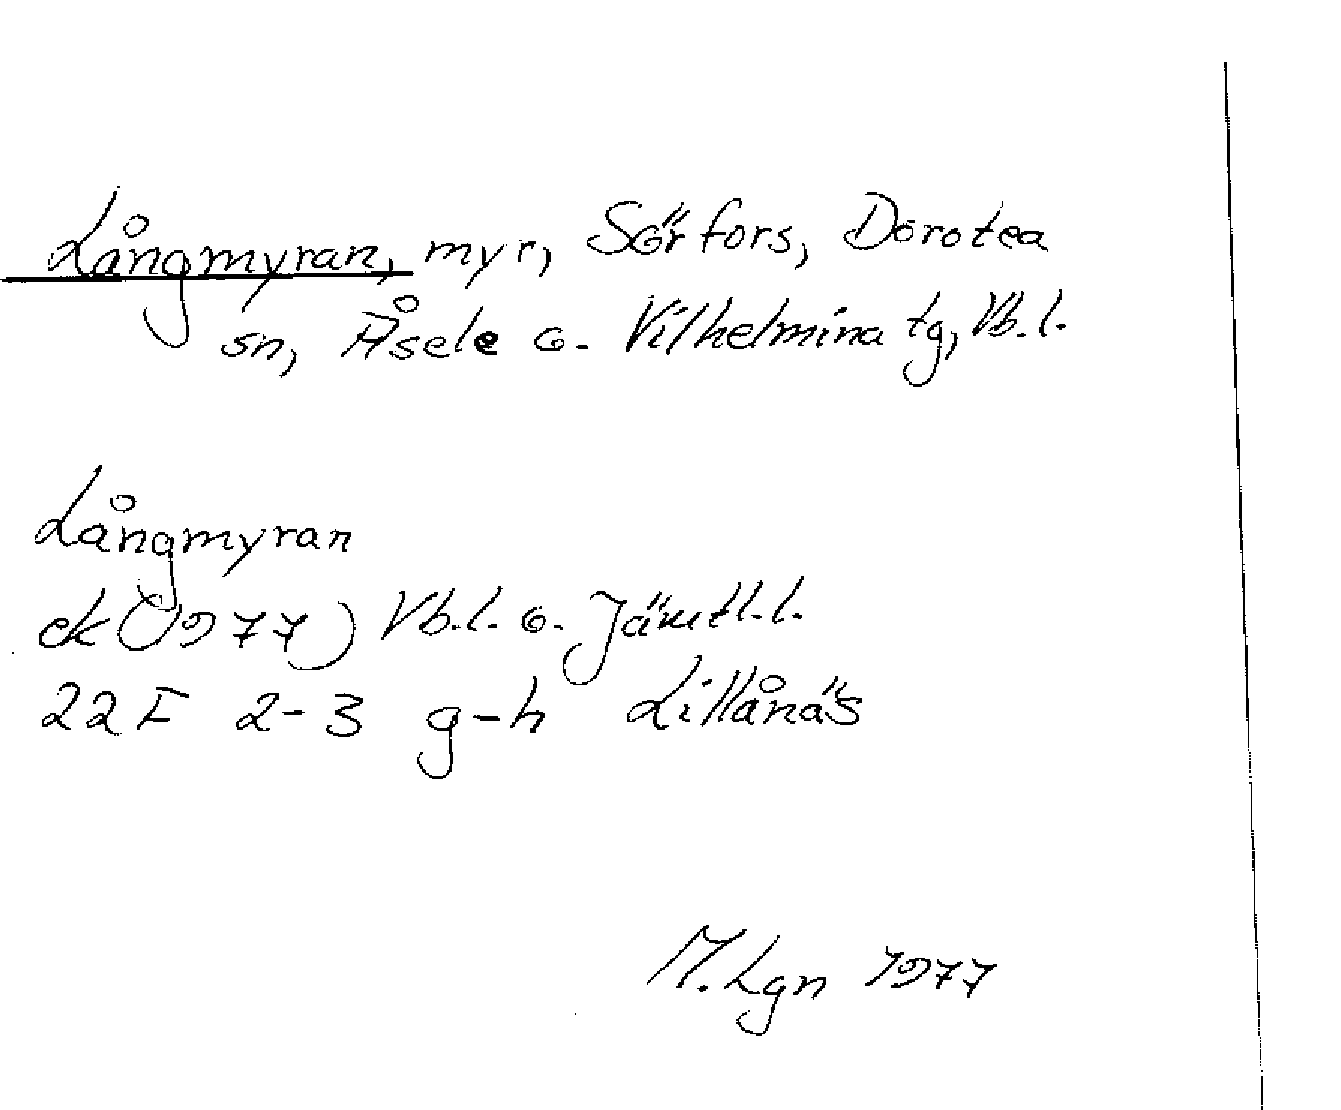 Långmyran, myr, Sörfors, Dorotea
sn, Åsele o. Vilhelmina tg, Vb.l.
Långmyran
ek (1977) Vb.l. o. Jämtl.l.
22F 2-3 g-h Lillånäs
M.Lgn 1977